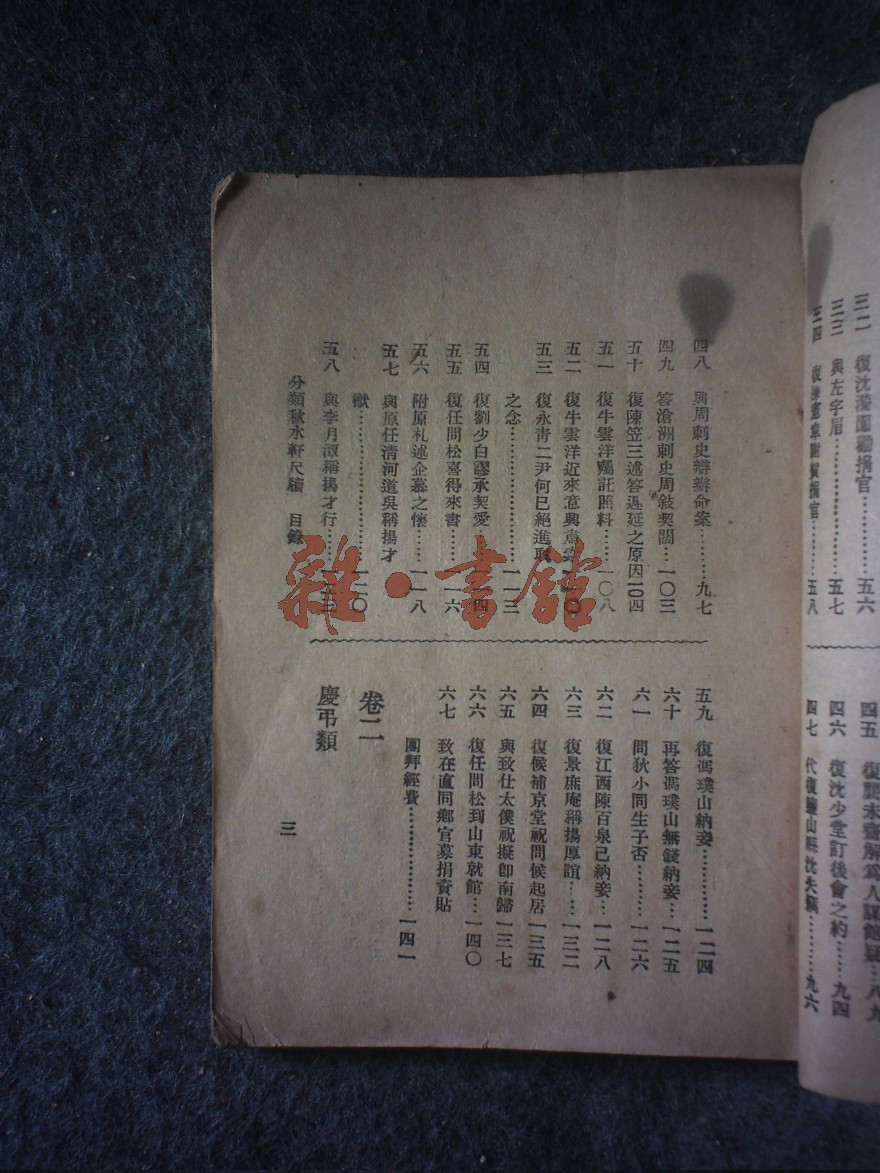 三二 復沈蕅園勸捐官……五六
三三 與左字眉……五七
三四 復陳 章謝賀捐官……五八
四五 復龔未齋解爲人謀館疑…八九
四六 復沈少堂訂後會之約……九四
四七 代復 山縣沈失竊………九六
四八 與周刺史辯辦命案………九七
四九 答滄洲刺史周敍契闊…一〇三
五十 復陳笠三述答遲延之原因一〇四
五一 復牛雲洋囑託照料……一〇八
五二 復牛雲洋近來意興 一一〇
五三 復永青二尹何已絕進取
之念………………………一一三
五四 復劉少白謬承契愛 一一四
五五 復任問松喜得來書…一一六
五六 附原札述企慕之懷…一一八
五七 與原任清河道吳稱揚才
猷………………………一二〇
五八 與李月潭稱揚才行……一二三
分類秋水軒尺牘 目錄
五九 復馮璞山納妾……………一二四
六十 再答馮璞山無錢納妾…一二五
六一 問狄小同生子否………一二六
六二 復江西陳百泉已納妾…一二八
六三 復景庶庵稱揚厚誼……一三二
六四 復候補京堂祝問候起居一三五
六五 與致仕太僕祝擬卽南歸一三七
六六 復任問松到山東就館…一四〇
六七 致在直同鄉官募捐資貼
團拜經費…………………一四一
卷二
慶弔類
三
雜·書館